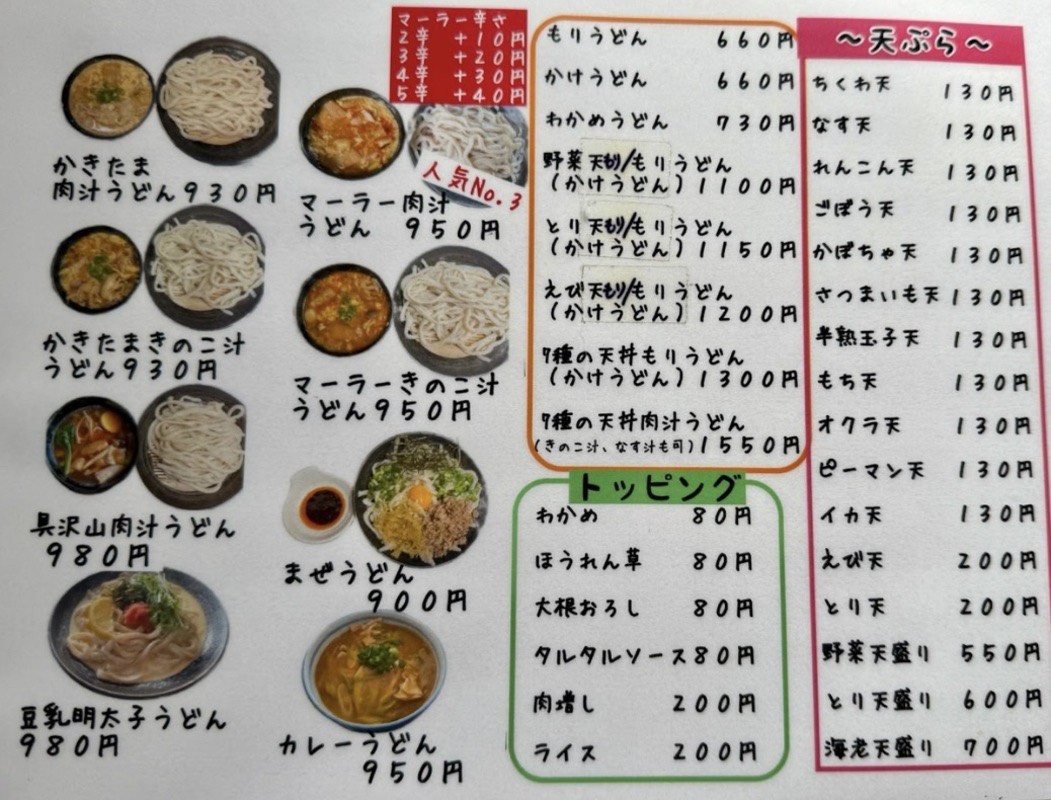 かきたま
肉汁うどん930円
かきたまきのこ汁
うどん930円
具沢山肉汁うどん
980円
豆乳明太子うどん
980円
マーラー辛さ
2辛 +10円
3辛 +20円
4辛 +30円
5辛 +40円
人気No.3
マーラー肉汁
うどん 950円
マーラーきのこ汁
うどん950円
まぜうどん
900円
カレーうどん
950円
もりうどん 660円
かけうどん 660円
わかめうどん 730円
野菜天もり/もりうどん
(かけうどん)1100円
とり天もり/もりうどん
(かけうどん)1150円
えび天もり/もりうどん
(かけうどん)1200円
7種の天丼もりうどん
(かけうどん)1300円
7種の天丼肉汁うどん
(きのこ汁、なす汁も可)1550円
トッピング
わかめ 80円
ほうれん草 80円
大根おろし 80円
タルタルソース80円
肉増し 200円
ライス 200円
~天ぷら~
ちくわ天 130円
なす天 130円
れんこん天 130円
ごぼう天 130円
かぼちゃ天 130円
さつまいも天130円
半熟玉子天 130円
もち天 130円
オクラ天 130円
ピーマン天 130円
イカ天 130円
えび天 200円
とり天 200円
野菜天盛り 550円
とり天盛り 600円
海老天盛り 700円